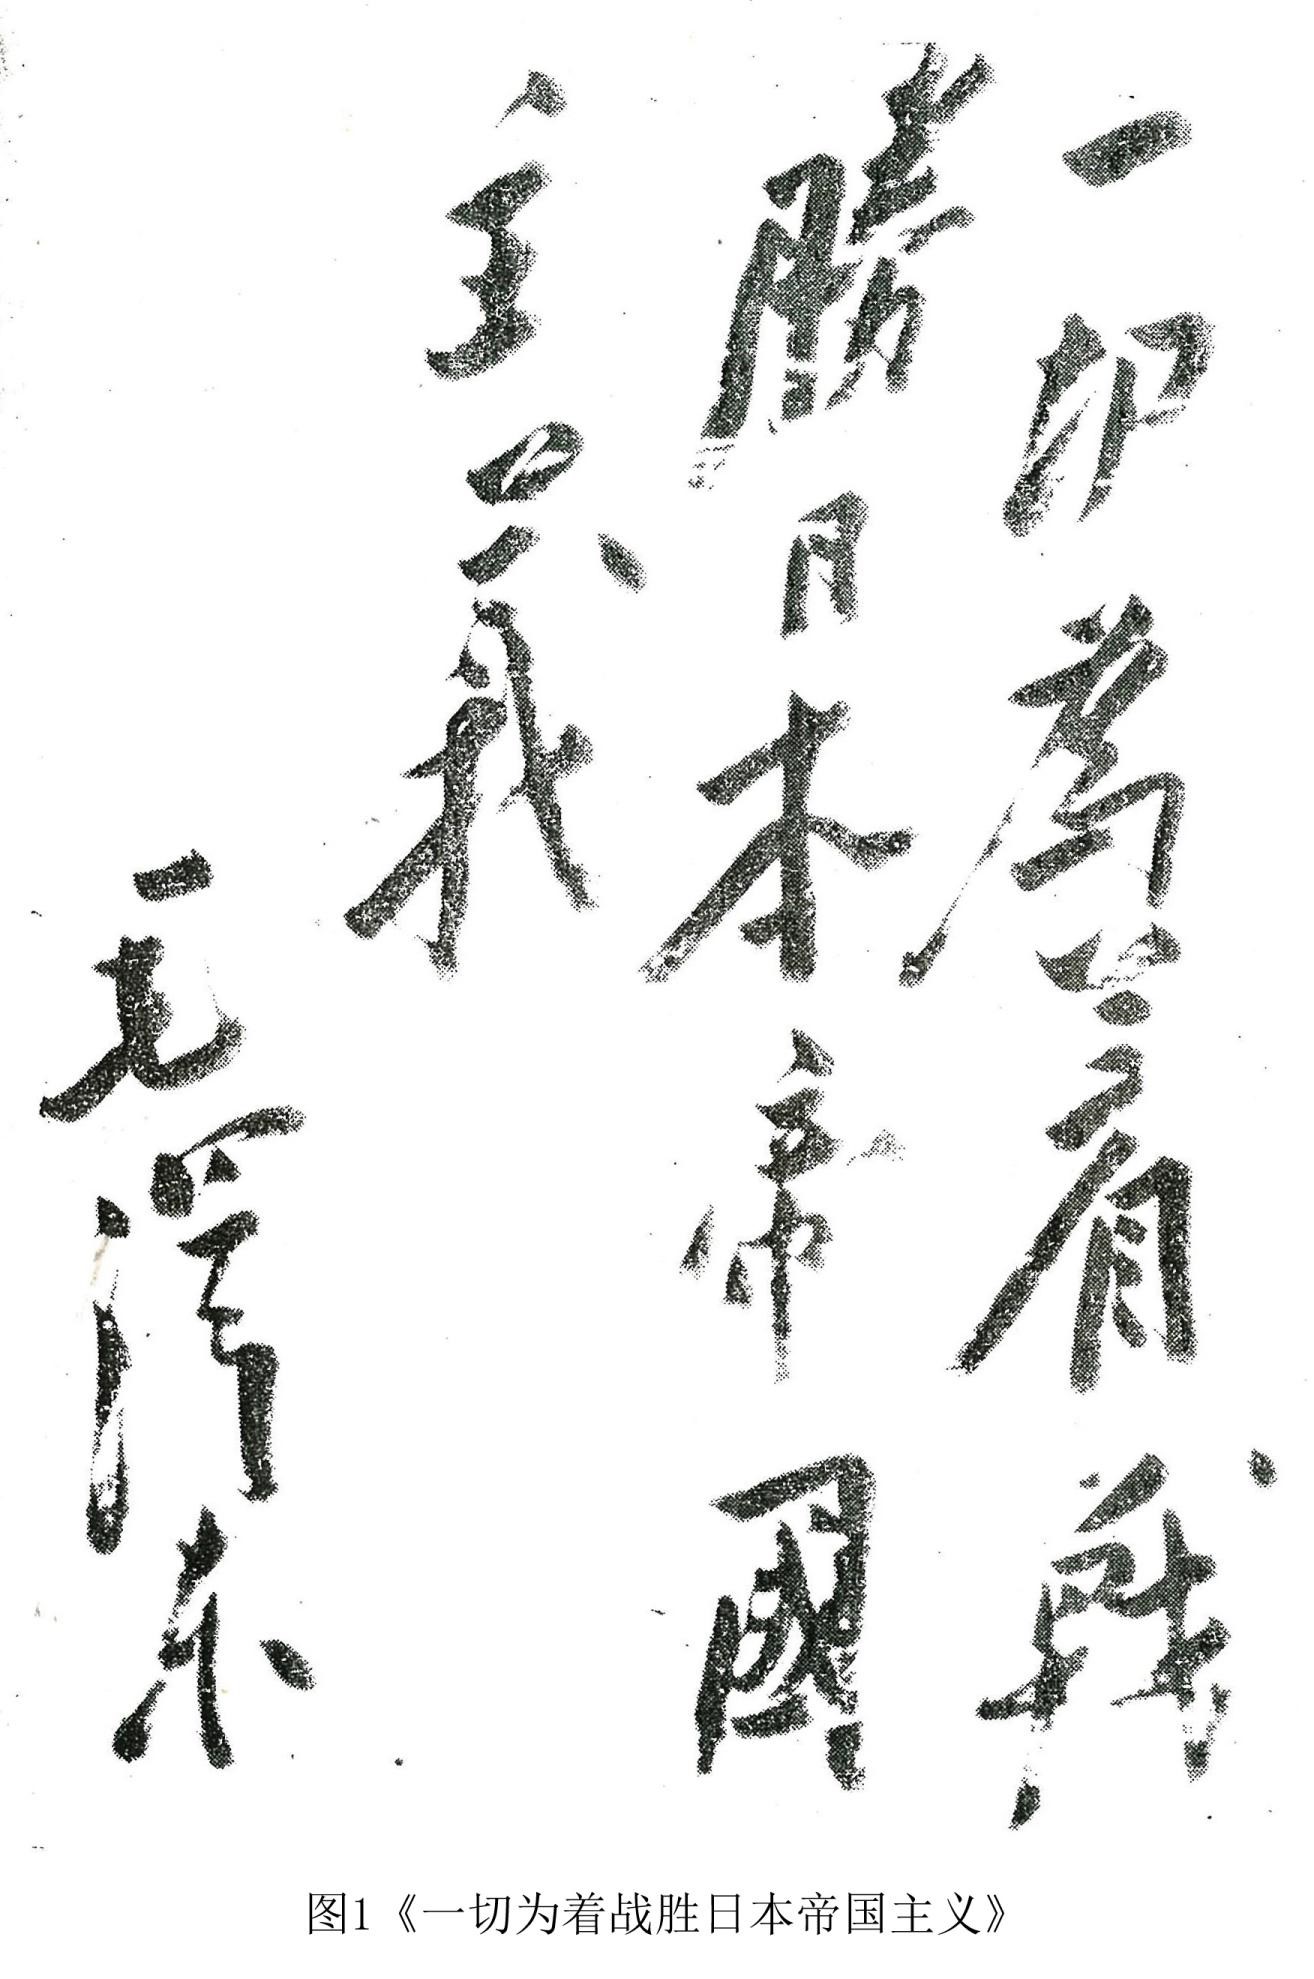 一切为着戰
勝日本帝國
主义
毛澤东
图1《一切为着战胜日本帝国主义》